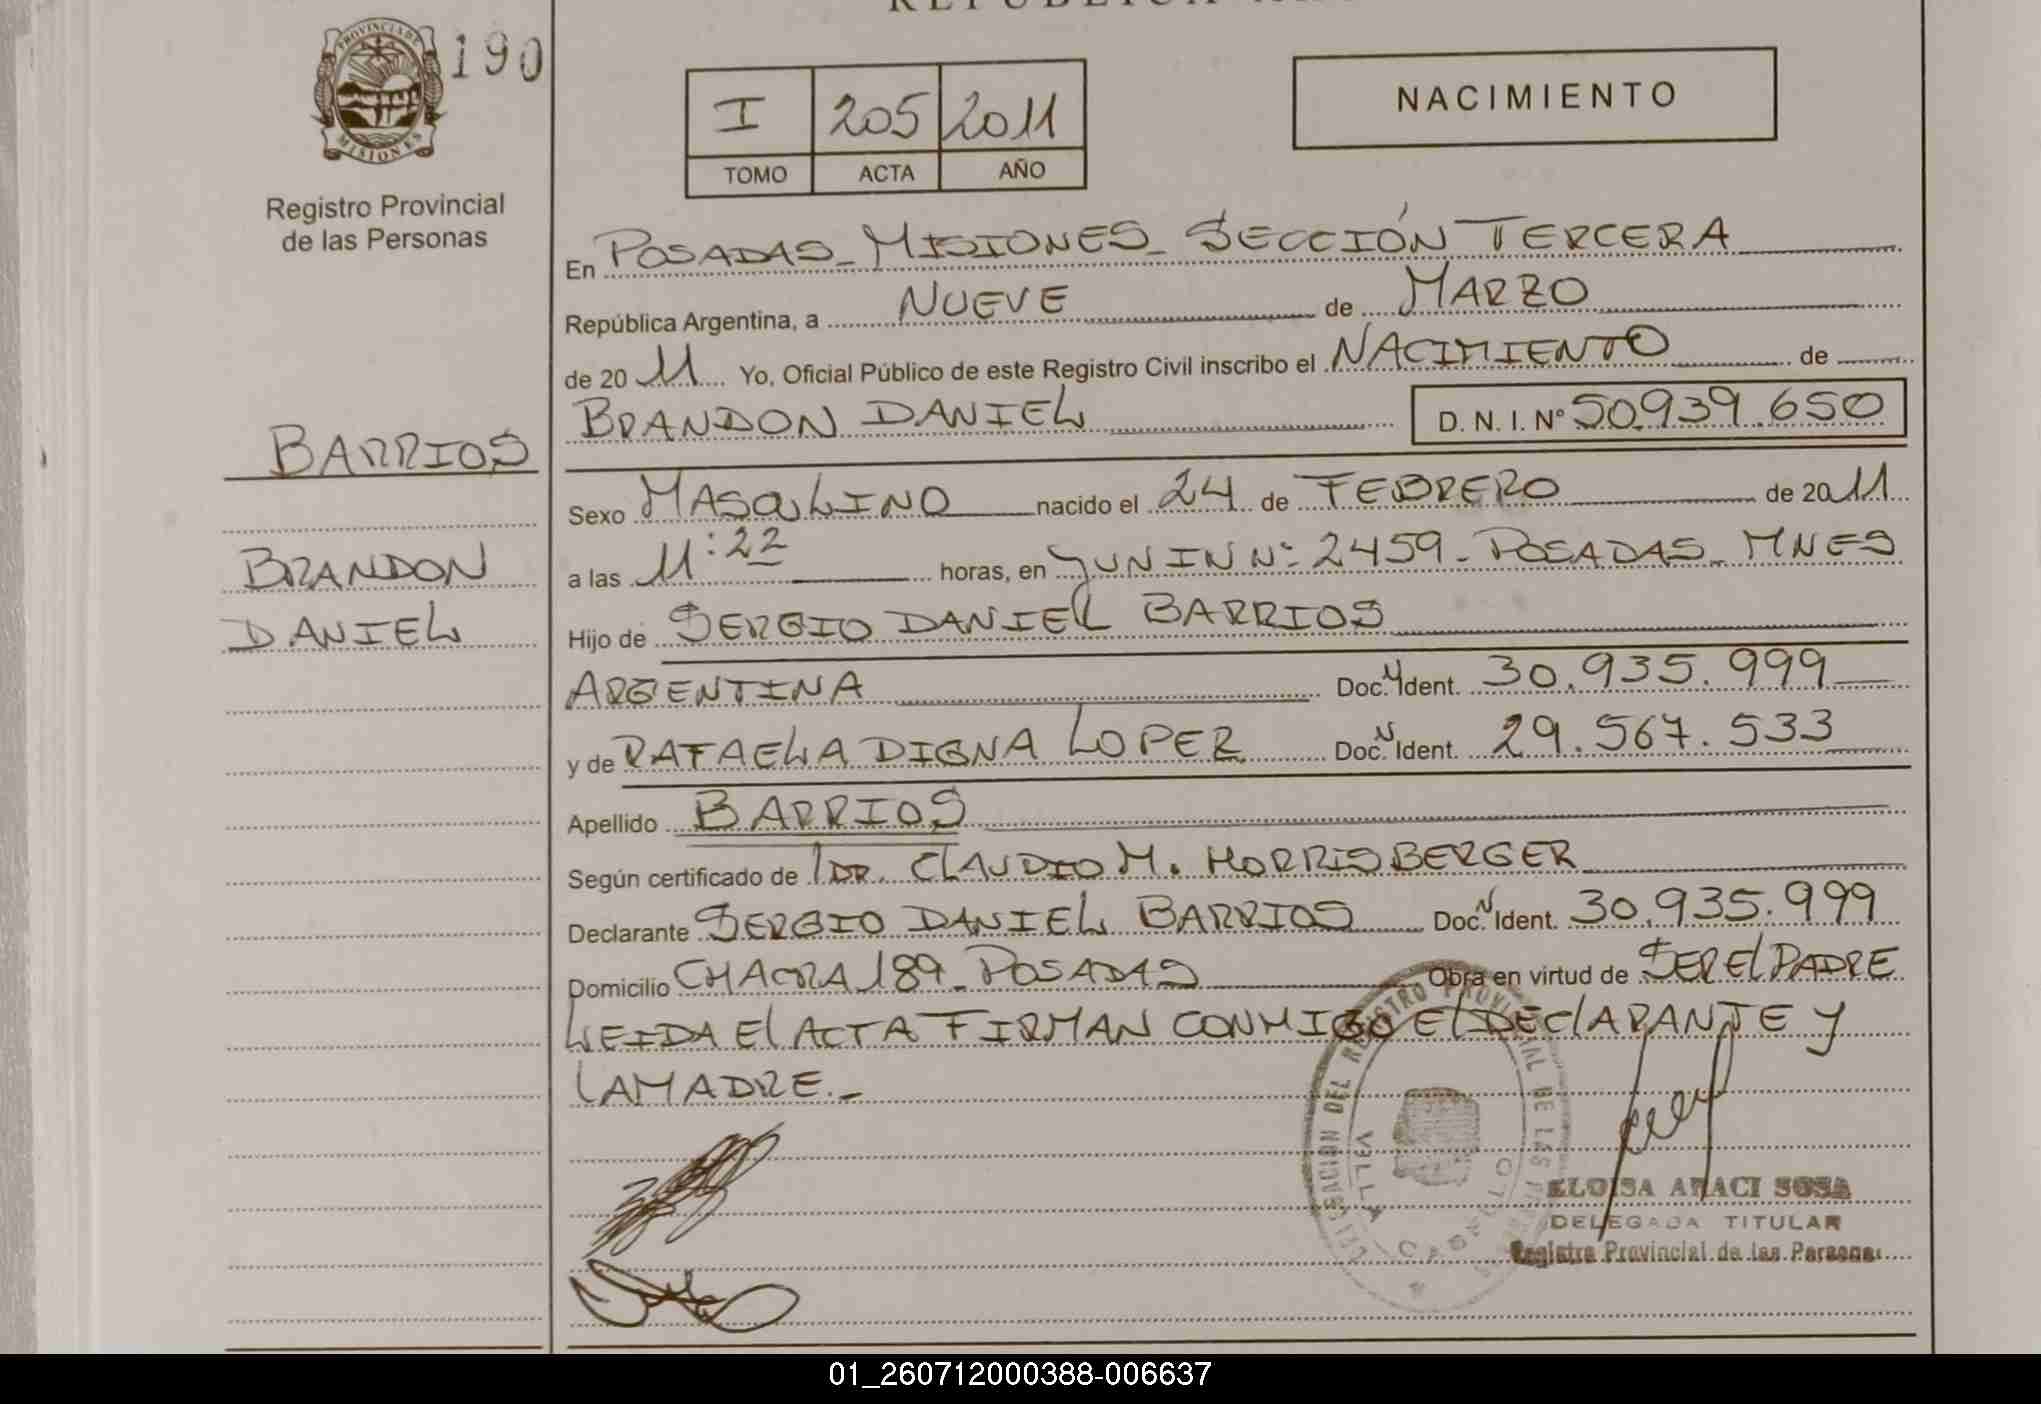 PROVINCIA DE
MISIONES
190
Registro Provincial
de las Personas
BARRIOS
BRANDON
DANIEL
I 205 2011
TOMO ACTA AÑO
NACIMIENTO
En POSADAS - MISIONES - SECCIÓN TERCERA
República Argentina, a NUEVE de MARZO
de 2011 Yo, Oficial Público de este Registro Civil inscribo el NACIMIENTO de
BRANDON DANIEL D. N. I. Nº 50.939.650
Sexo MASCULINO nacido el 24 de FEBRERO de 2011
a las 11:22 horas, en JUNIN Nº 2459 - POSADAS - MNES
Hijo de SERGIO DANIEL BARRIOS
ARGENTINA Doc. Ident. 30.935.999
y de RAFAELA DIGNA LOPEZ Doc. Ident. 29.567.533
Apellido BARRIOS
Según certificado de DR. CLAUDIO M. MORRISBERGER
Declarante SERGIO DANIEL BARRIOS Doc. Ident. 30.935.999
Domicilio CHACRA 189 - POSADAS Obra en virtud de SER EL PADRE
LEIDA El ACTA FIRMAN CONMIGO El DEClARANTE Y
LA MADRE.-
ELOISA ARACI SOSA
DELEGADA TITULAR
Registro Provincial de las Personas
01_260712000388-006637